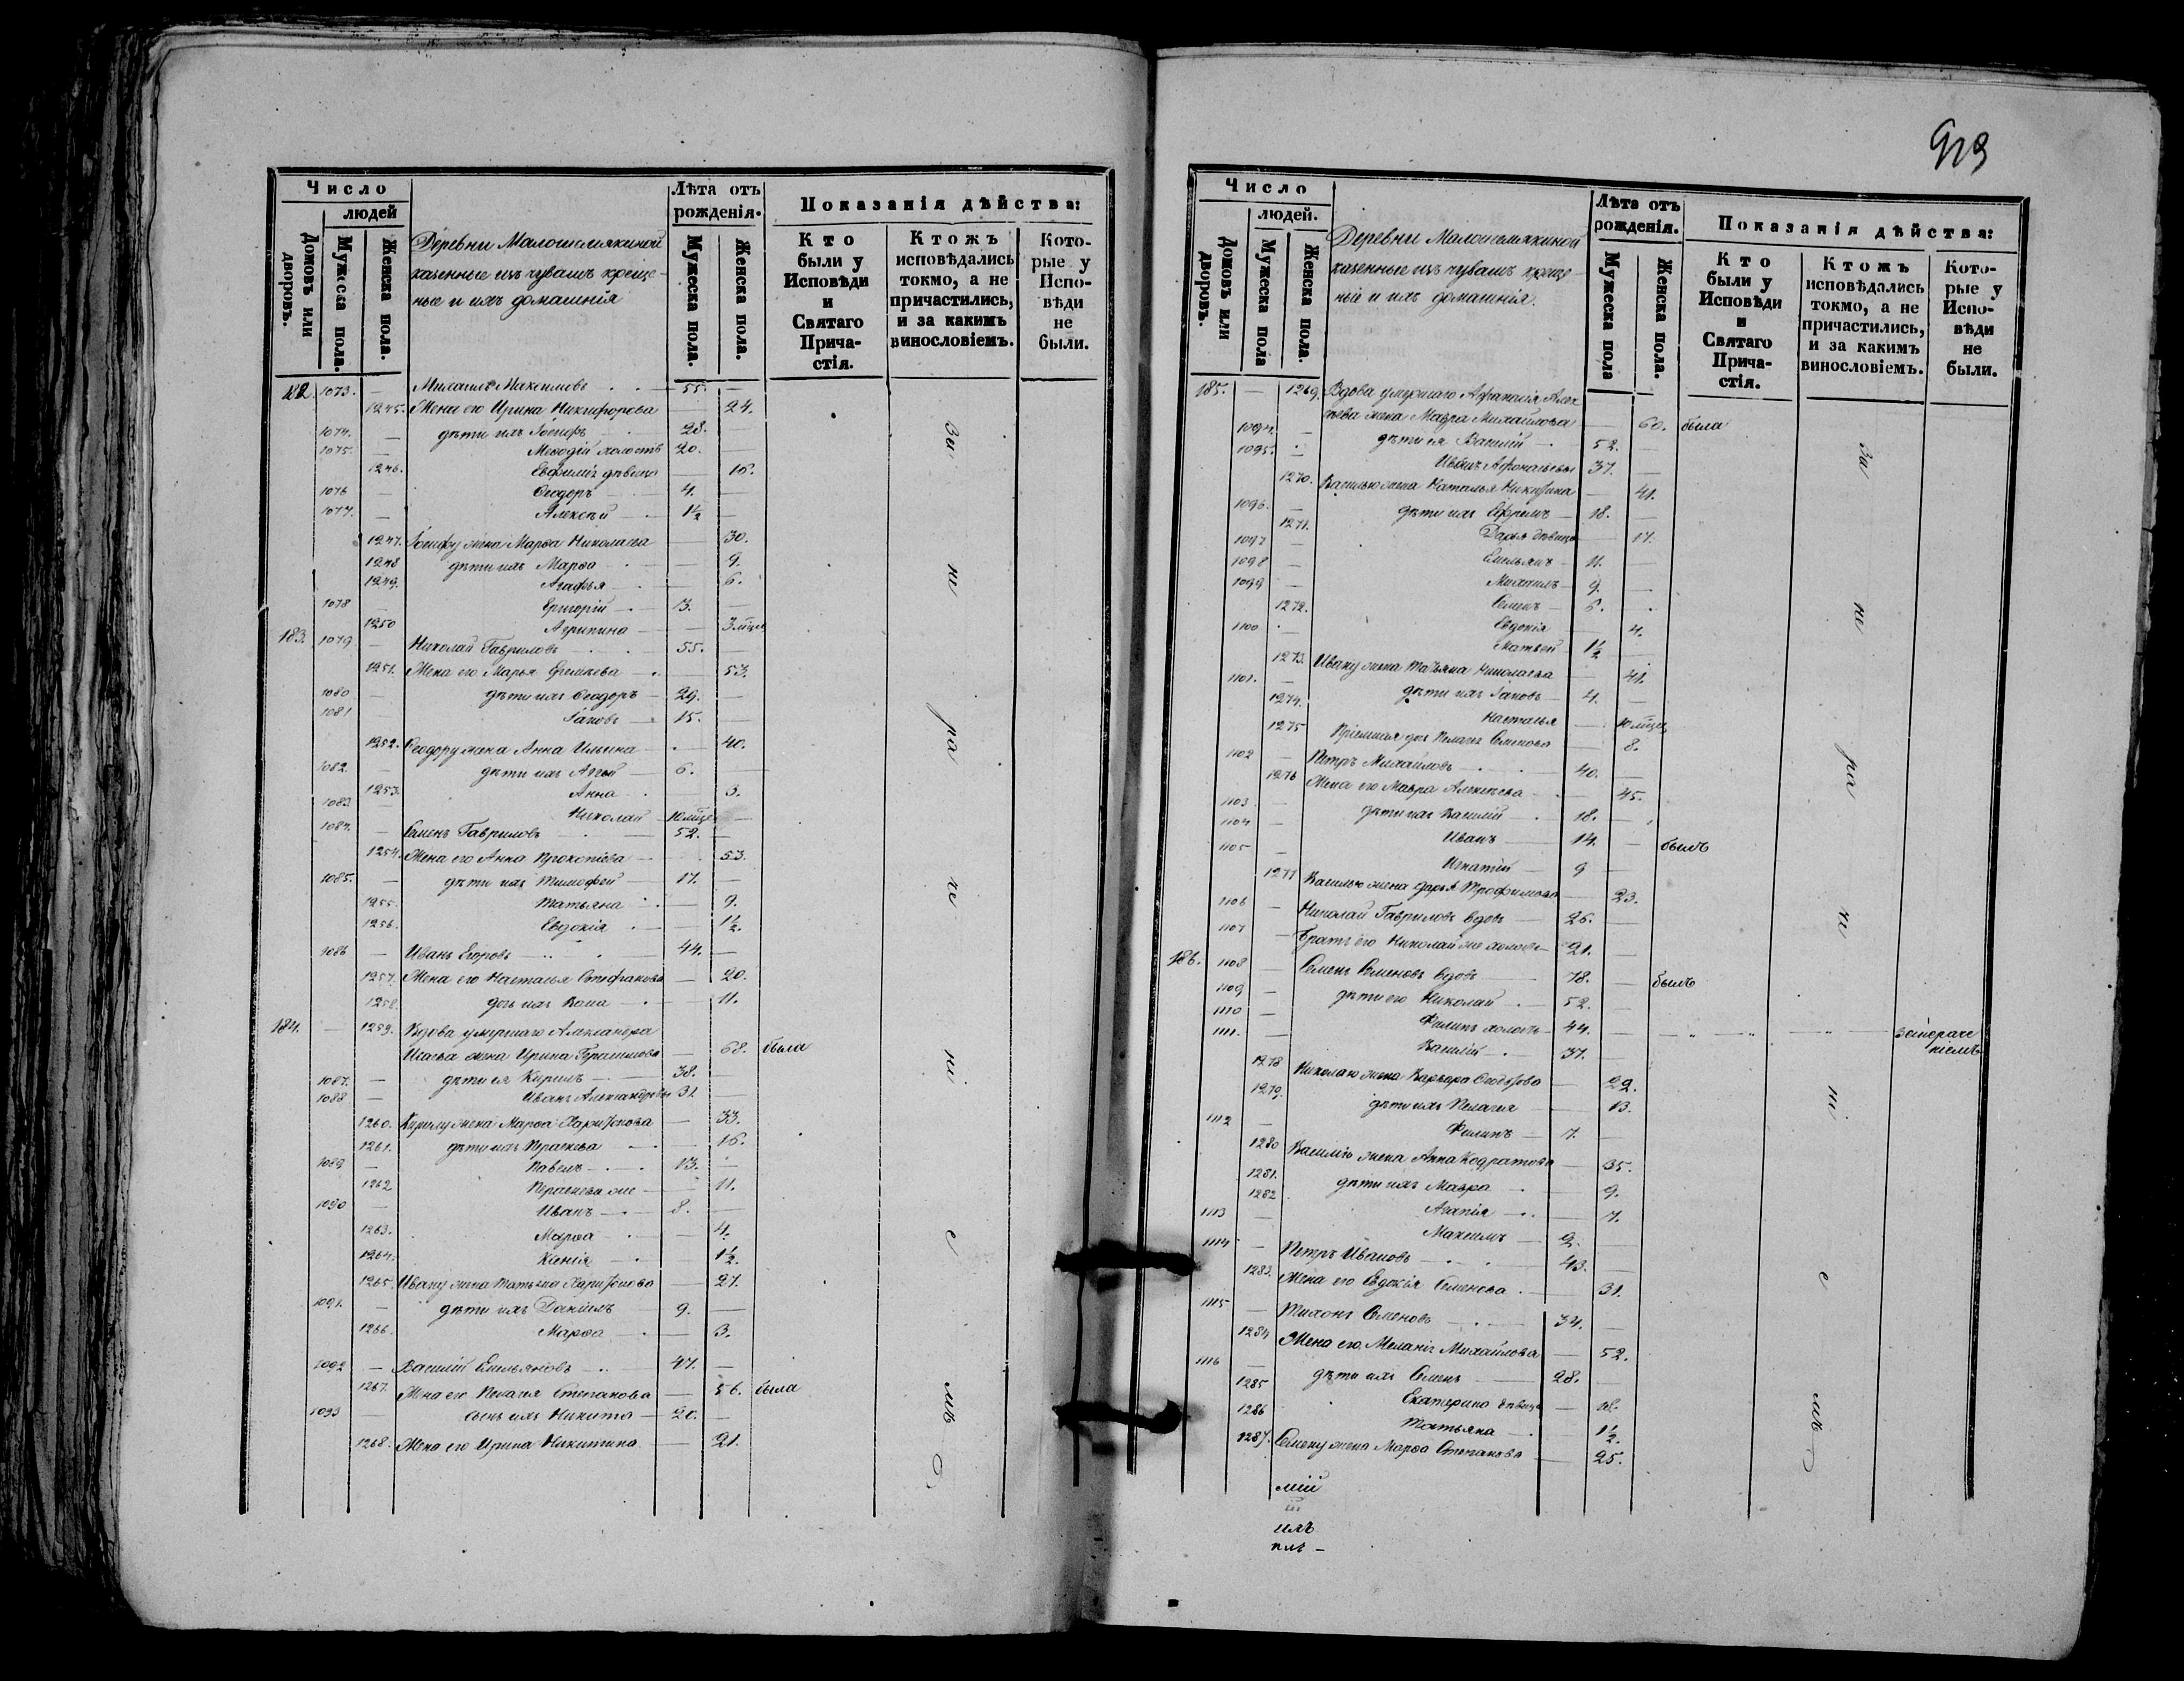 Число
людей
Домовъ или дворовъ.
Мужеска пола.
Женска пола.
Деревни Малошемякиной
казенные изъ чувашъ креще-
ные и ихъ домашнія
Лѣта отъ
рожденія.
Мужеска пола.
Женска пола.
Показанія дѣйства:
Кто
были у
Исповѣди
и
Святаго
Прича-
стія.
Ктожъ
исповѣдались
токмо, а не
причастились,
и за какимъ
винословіемъ.
Кото-
рые у
Испо-
вѣди
не
были.
182 1073. — Михаилъ Максимовъ — 55. —
1245. Жена его Ирина Никифорова — 24.
1074. — дѣти ихъ Іосифъ 28. —
1075. — Меѳодій холостъ 20. —
1246. Евфимія дѣвица — 16.
1076 — Ѳеодоръ — 4. —
1077. — Алексѣй — 1½ —
1247. Іосифу жена Марѳа Николаева — 30.
1248 дѣти ихъ Марѳа — 9.
1249. Агафья — 6.
1078 — Григорій — 3. —
1250 Агрипина — 3 мѣсяц
183. 1079 — Николай Гавриловъ — 55. —
1251. Жена его Марья — 53.
1080 — дѣти ихъ Ѳеодоръ — 29. —
1081 Іаковъ — 15. —
1252. Ѳеодору жена Анна Ильина — 40.
1082. — дѣти ихъ — 6. —
1253. Анна — 3.
1083. Николай — 10 мѣсяц —
1084. — Семенъ Гавриловъ — 52. —
1254. Жена его Анна Прокопіева — 53.
1085. — дѣти ихъ Тимофей — 17. —
1255. Татьяна — 9.
1256. Евдокія — 1½.
1086 — Иванъ Егоровъ — 44. —
1257. Жена его Настасья Стефанова — 20.
1258. дочь ихъ — 11.
184. — 1259. Вдова умершаго Александра
Исаева жена Ирина Герасимова — 68. была
1087. — дѣти ея Кирилъ — 38. —
1088 — Иванъ Александровы 31. —
1260. Кирилу жена Марѳа Харитонова — 33.
1261. дѣти ихъ Параскева — 16.
1089 — Павелъ — 13. —
1262 Параскева же — 11.
1090 — Иванъ — 8. —
1263. Марѳа — 4.
1264. Ксенія — 1½.
1265. Ивану жена Татьяна Харитонова — 27.
1091. — дѣти ихъ Даніилъ 9. —
1266. Марѳа — 3.
1092 — Василій Емельяновъ — 47. —
1267. Жена его Пелагея Степанова — 56. была
1093 — сынъ ихъ Никита — 20. —
1268. Жена его Ирина Никитина — 21.
за
не
ра
че
ні
е
мъ
919
Число
людей.
Домовъ или дворовъ.
Мужеска пола
Женска пола.
Деревни Малошемякиной
казенные изъ чувашъ креще-
ніи и ихъ домашнія.
Лѣта отъ
рожденія.
Мужеска пола
Женска пола.
Показанія дѣйства:
Кто
были у
Исповѣди
и
Святаго
Прича-
стія.
Ктожъ
исповѣдались
токмо, а не
причастились,
и за какимъ
винословіемъ.
Кото-
рые у
Испо-
вѣди
не
были.
185. — 1269. Вдова умершаго Афанасія Алек
сѣева жена Мавра Михайлова — 60. была
1094. — дѣти ея Василій — 52. —
1095. — Иванъ Афонасьевы 37. —
1270. Василью жена Наталья Никитина — 41.
1096. — дѣти ихъ Ефремъ — 18. —
1271. Дарья дѣвица — 17.
1097 — Емельянъ — 11. —
1098 — Михаилъ — 9. —
1099 — Семенъ — 6.
1272. Евдокія — 4.
1100 — Матвѣй — 1½ —
1273. Ивану жена Татьяна Николаева — 41.
1101. — дѣти ихъ Іаковъ — 4. —
1274. Настасья — 10 мѣсяц
1275 Пріемная дочь Пелагея Семенова — 8.
1102 — Петръ Михайловъ — 40. —
1276 Жена его Мавра Алексѣева — 45.
1103 — дѣти ихъ Василій — 18. —
1104 — Иванъ — 14. — былъ
1105 — Игнатій — 9 —
1277 Василью жена Дарья Трофимова — 23.
1106 — Николай Гавриловъ вдовъ — 26. —
1107 — Братъ его Николай же холостъ — 21. —
186. 1108 — Семенъ Семеновъ вдовъ — 78. — былъ
1109 — дѣти его Николай — 52. —
1110 — Филипъ холостъ — 44. — занераче
ніемъ
1111. — Василій — 37. —
1278 Николаю жена Варвара — 22.
1279. дѣти ихъ Пелагея — 13.
1112 — Филипъ — 7. —
1280 Василію жена Анна Кодратова — 35.
1281. дѣти ихъ Мавра — 9.
1282 Агапія — 7.
1113 — Максимъ — 2. —
1114 — Петръ Ивановъ — 43. —
1283. Жена его Евдокія Семенова — 31.
1115 — Тихонъ Семеновъ — 34. —
1284 Жена его Меланія Михайлова — 52.
1116 — дѣти ихъ Семенъ — 28. —
1285 Екатерина дѣвица — 18.
1286 Татьяна — 1½.
1287. Семену жена Марѳа Степанова — 25.
за
не
ра
че
ні
е
мъ